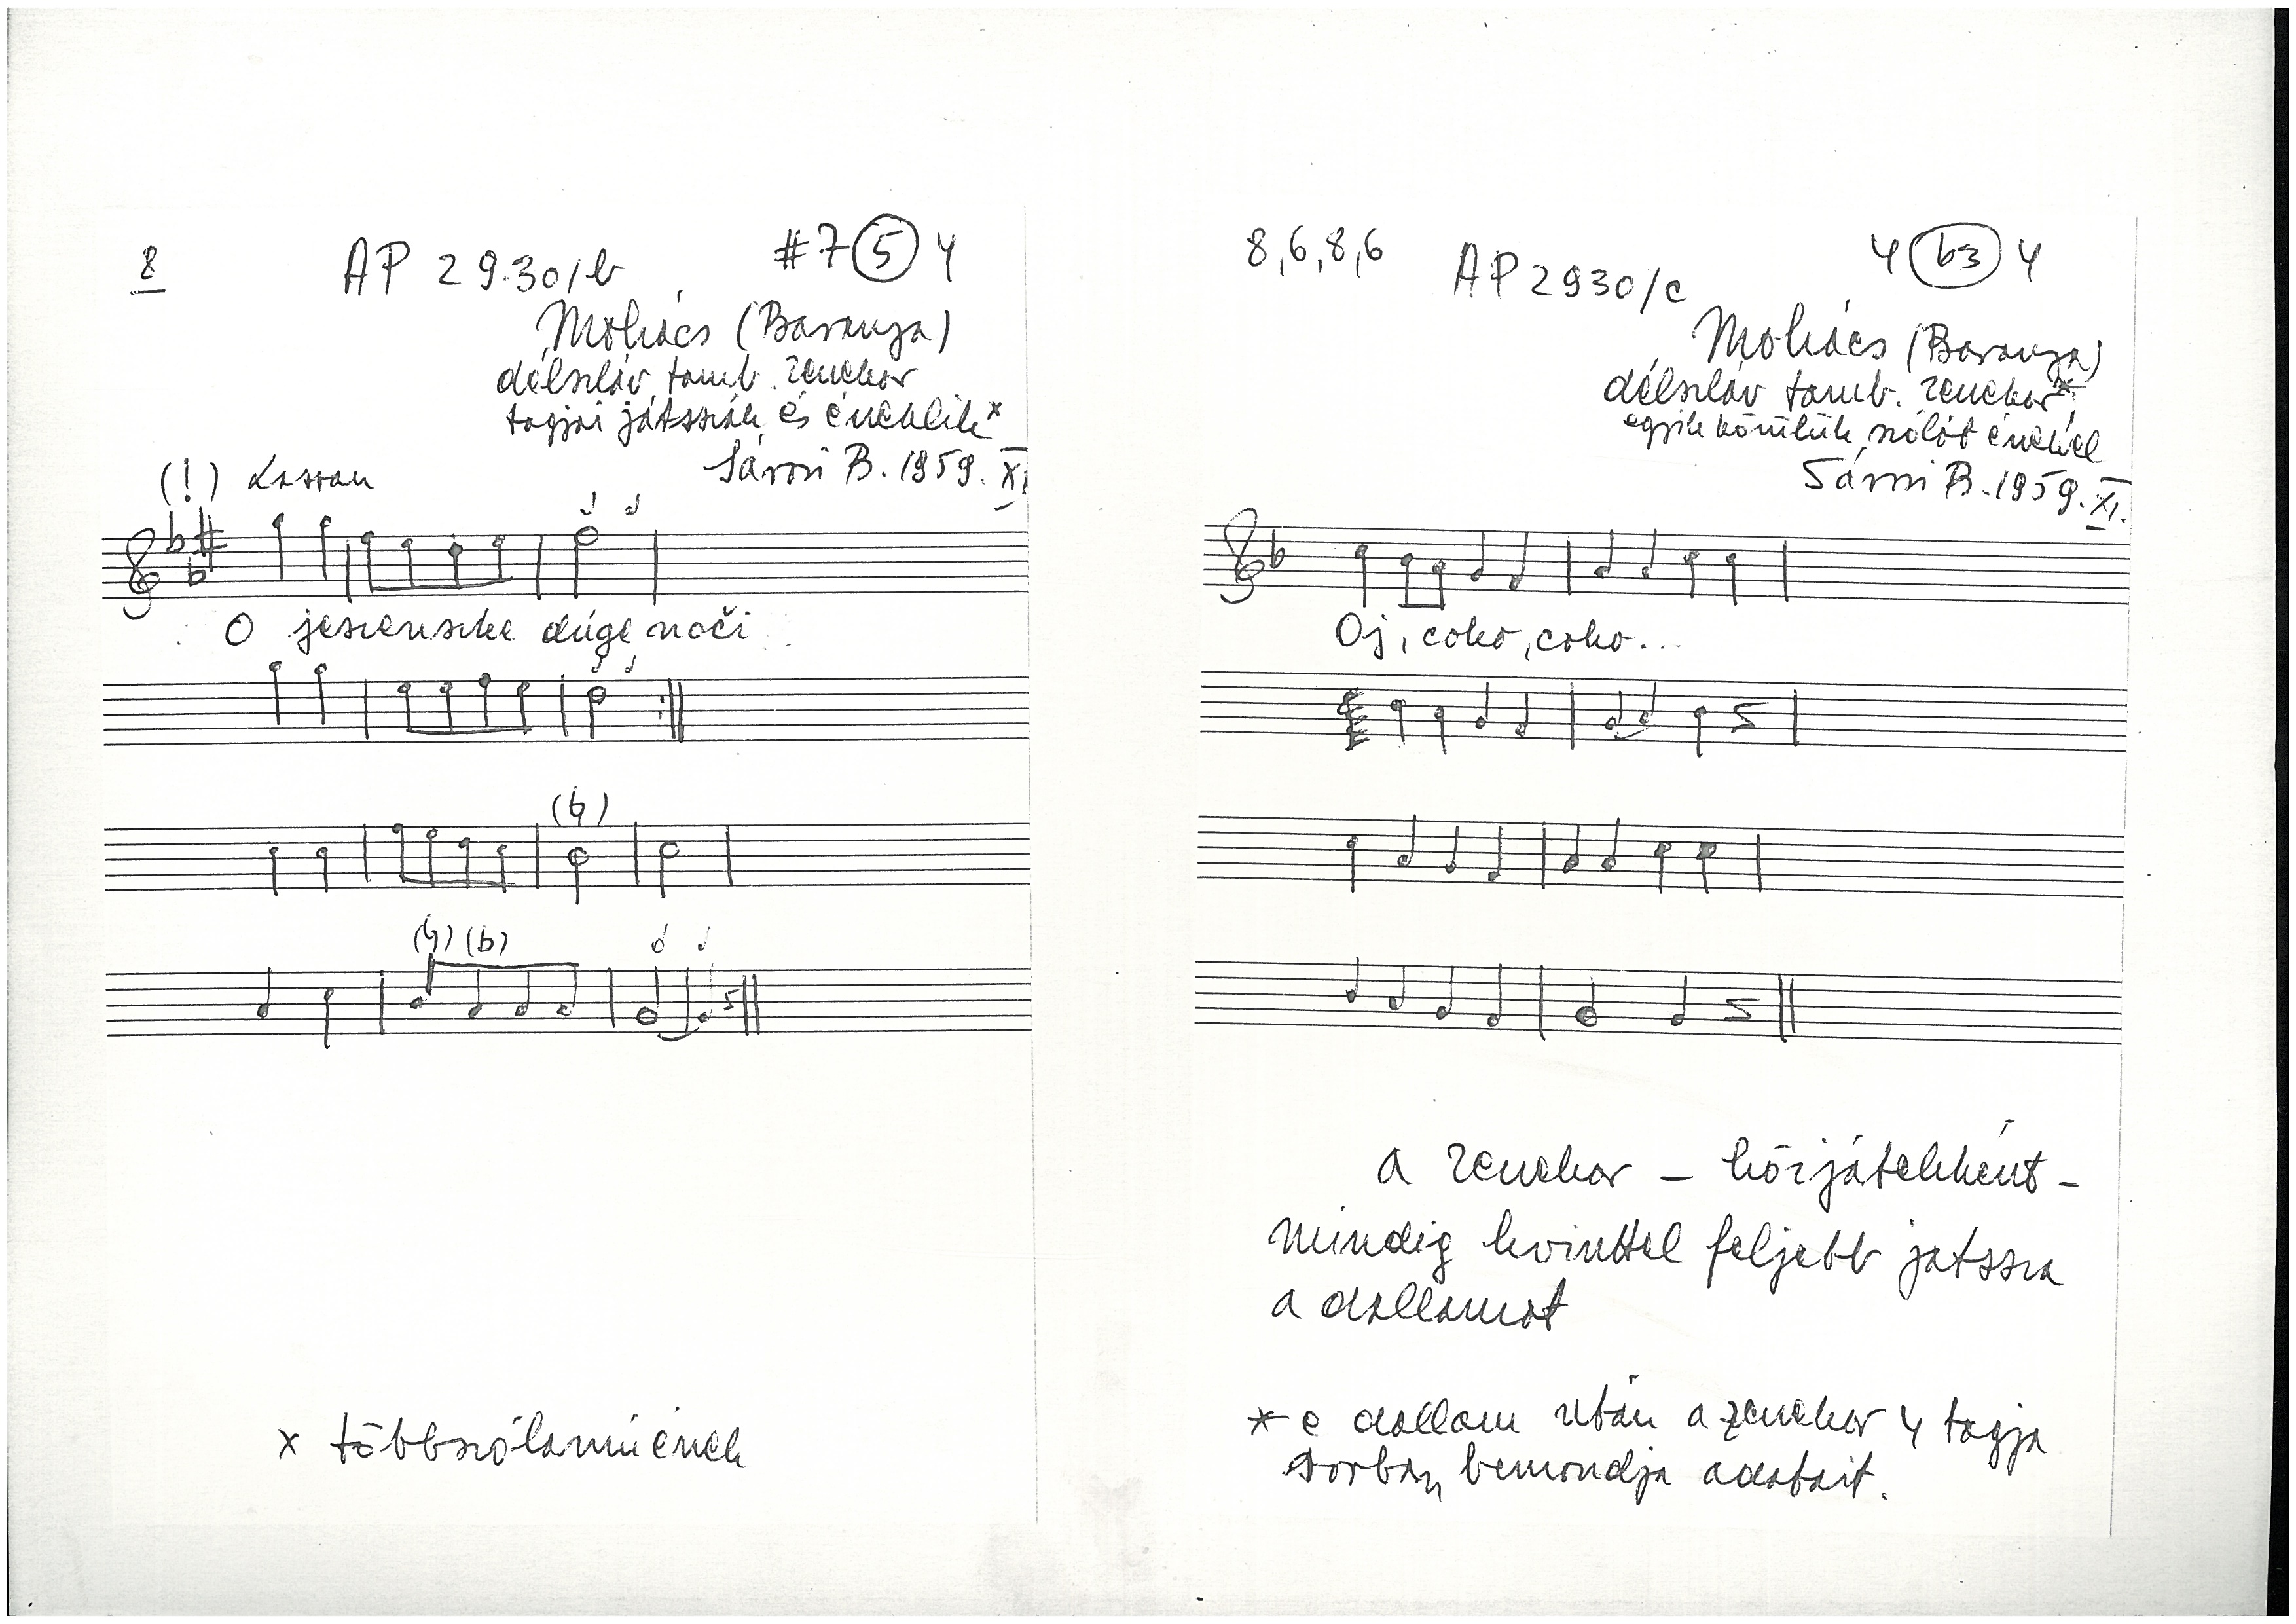 8
AP 29.30/b
#7 5 4
Mohács (Baranya)
délszláv tamb. zenekar
tagjai játsszák és éneklik x
Sárosi B. 1959. XI.
(!) Lassan
O jesienske dúge noči
x többszólamú ének
8,6,8,6
AP 2930/c
4 b3 4
Mohács (Baranya)
délszláv tamb. zenekar*
egyik közülük szólót énekel
Sárosi B. 1959. XI.
Oj, coko, coko...
a zenekar – közjátékként –
mindig kvinttel feljebb játssza
a dallamot
* e dallam után a zenekar 4 tagja
sorban bemondja adatait.